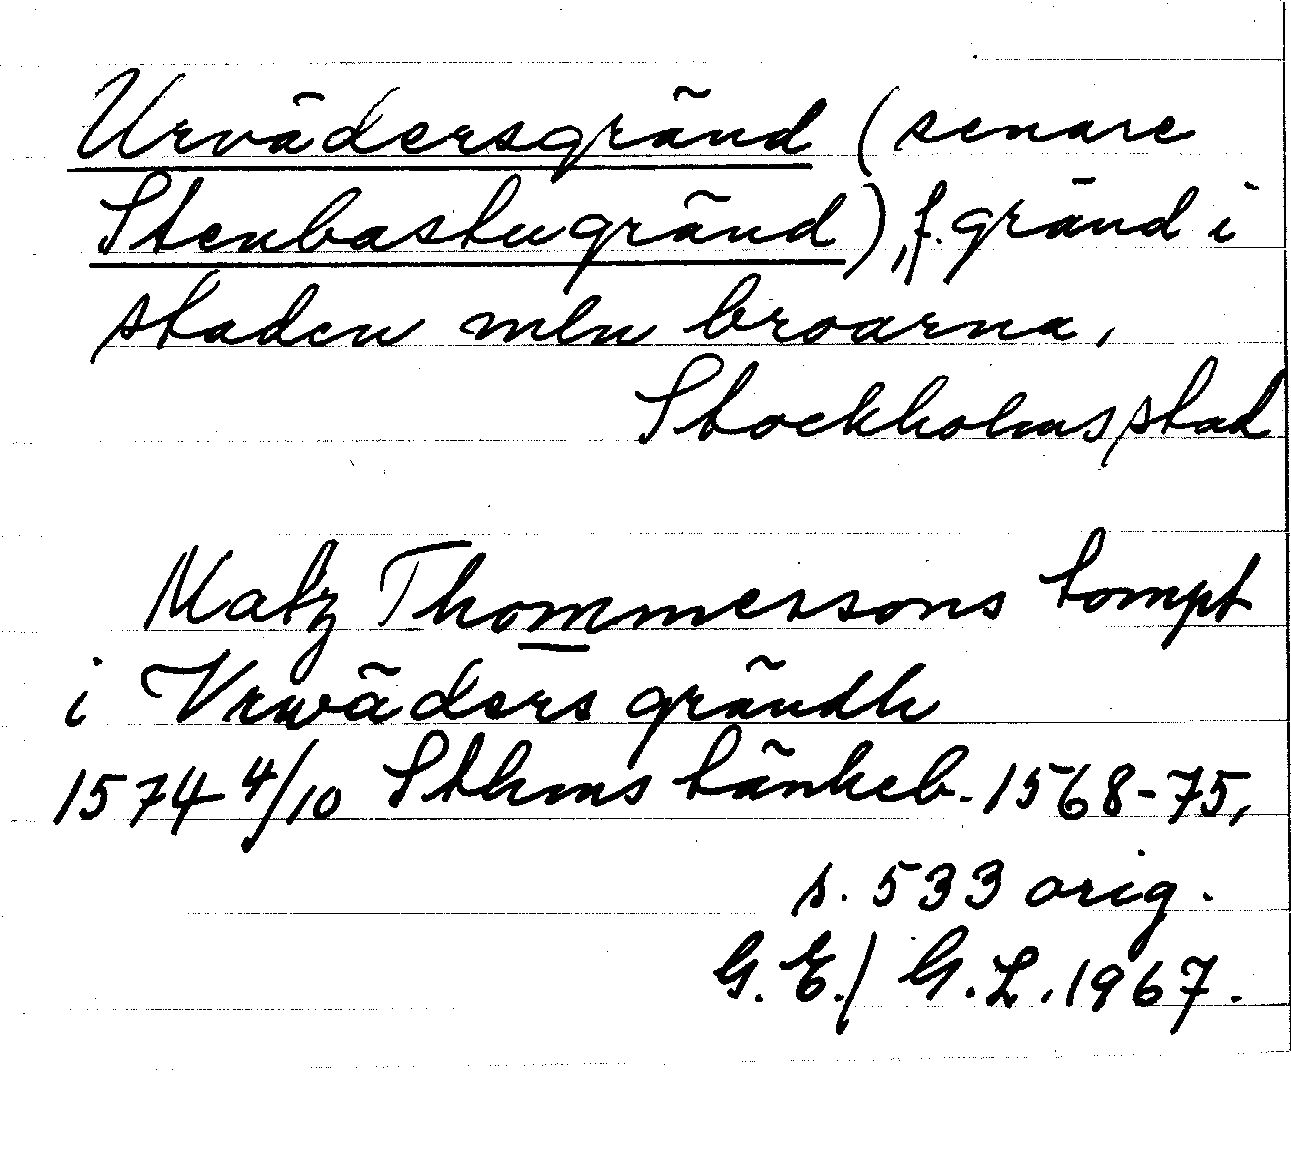 Urvädersgränd (senare
Stenbastugränd), f. gränd i
staden mln broarna,
Stockholms stad
Matz Thommessons tompt
i Vrwäders grändh
1574 4/10 Sthms tänkeb. 1568-75,
s. 533 orig.
G.E./ G.L. 1967.